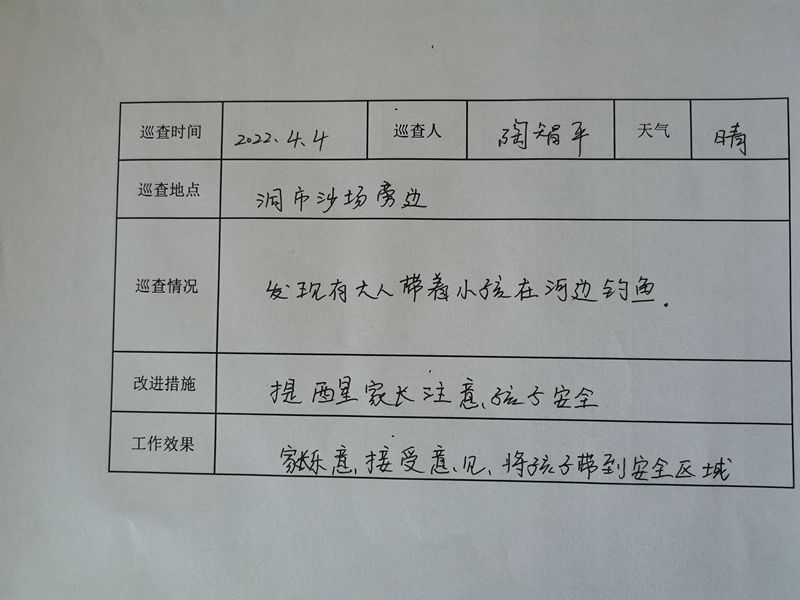 巡查时间 2022.4.4 巡查人 陶娟平 天气 晴
巡查地点 洞市沙场旁边
巡查情况 发现有大人带着小孩在河边钓鱼.
改进措施 提醒家长注意孩子安全
工作效果 家长乐意接受意见、将孩子带到安全区域